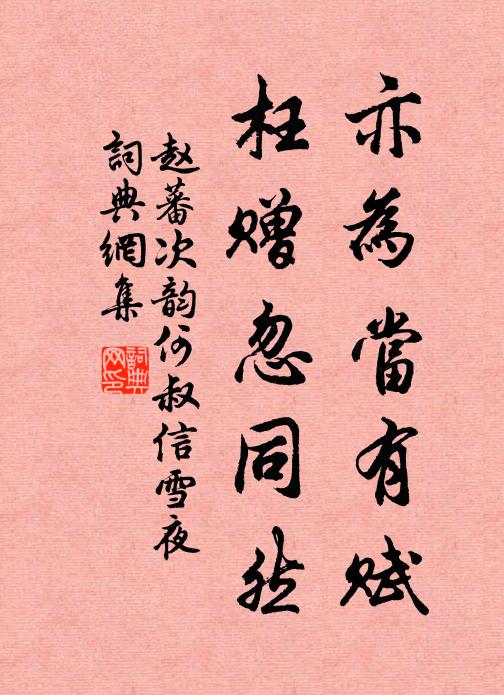 亦為當有赋
枉赠忽同然
赵蕃次韵何叔信雪夜
詞典網集
詞典网印